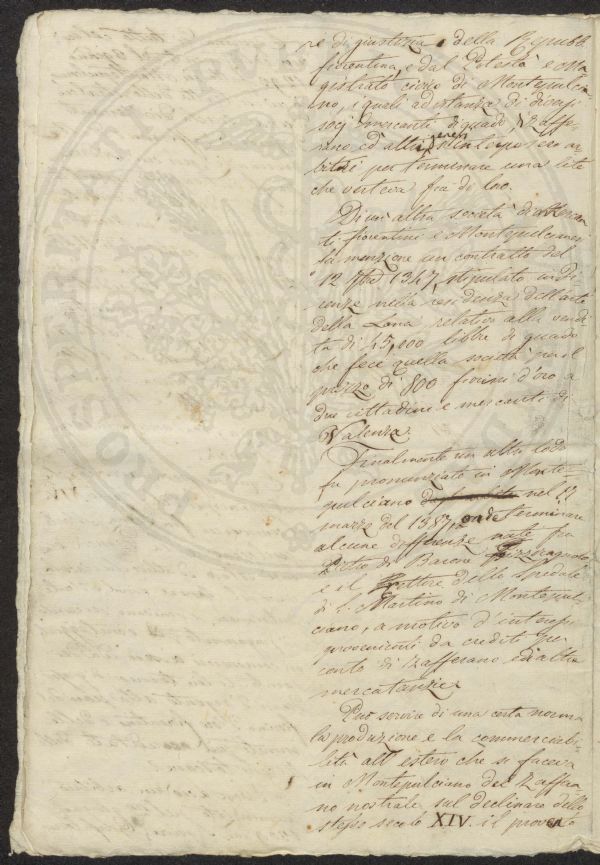 re di giustizia della Repubb.
fiorentina, e dal Potestà e Ma-
gistrato civico di Montepulcia-
no, i quali ad istanza di diversi
socj mercanti di guado, Zaffe-
rano ed altri generi interposero ar-
bitri per terminare una lite
che verteva fra di loro.
Di un'altra società di Mercan-
ti fiorentini e Montepulcianesi
fa menzione un contratto del
12 7bre 1347, stipulato in Fi-
renze nella residenza dell'arte
della Lana relativo alla vendi-
ta di 45,000 libbre di guado
che fece quella società per il
prezzo di 800 fiorini d'oro a
due cittadini e mercanti di
Valenza.
Finalmente un altro lodo
fu pronunziato in Monte-
pulciano nel 17
marzo del 1387 onde terminare
alcune differenze nate fra
Pietro di Barone
e il Rettore dello Spedale
di S. Martino di Montepul-
ciano, a motivo d'interessi
provenienti da crediti per
conto di Zafferano ed altre
mercatanzie.
Può servire di una certa norma
la produzione e la commerciabi-
lità all'estero che si faceva
in Montepulciano del Zaffera-
no nostrale sul declinare dello
stesso secolo XIV. il